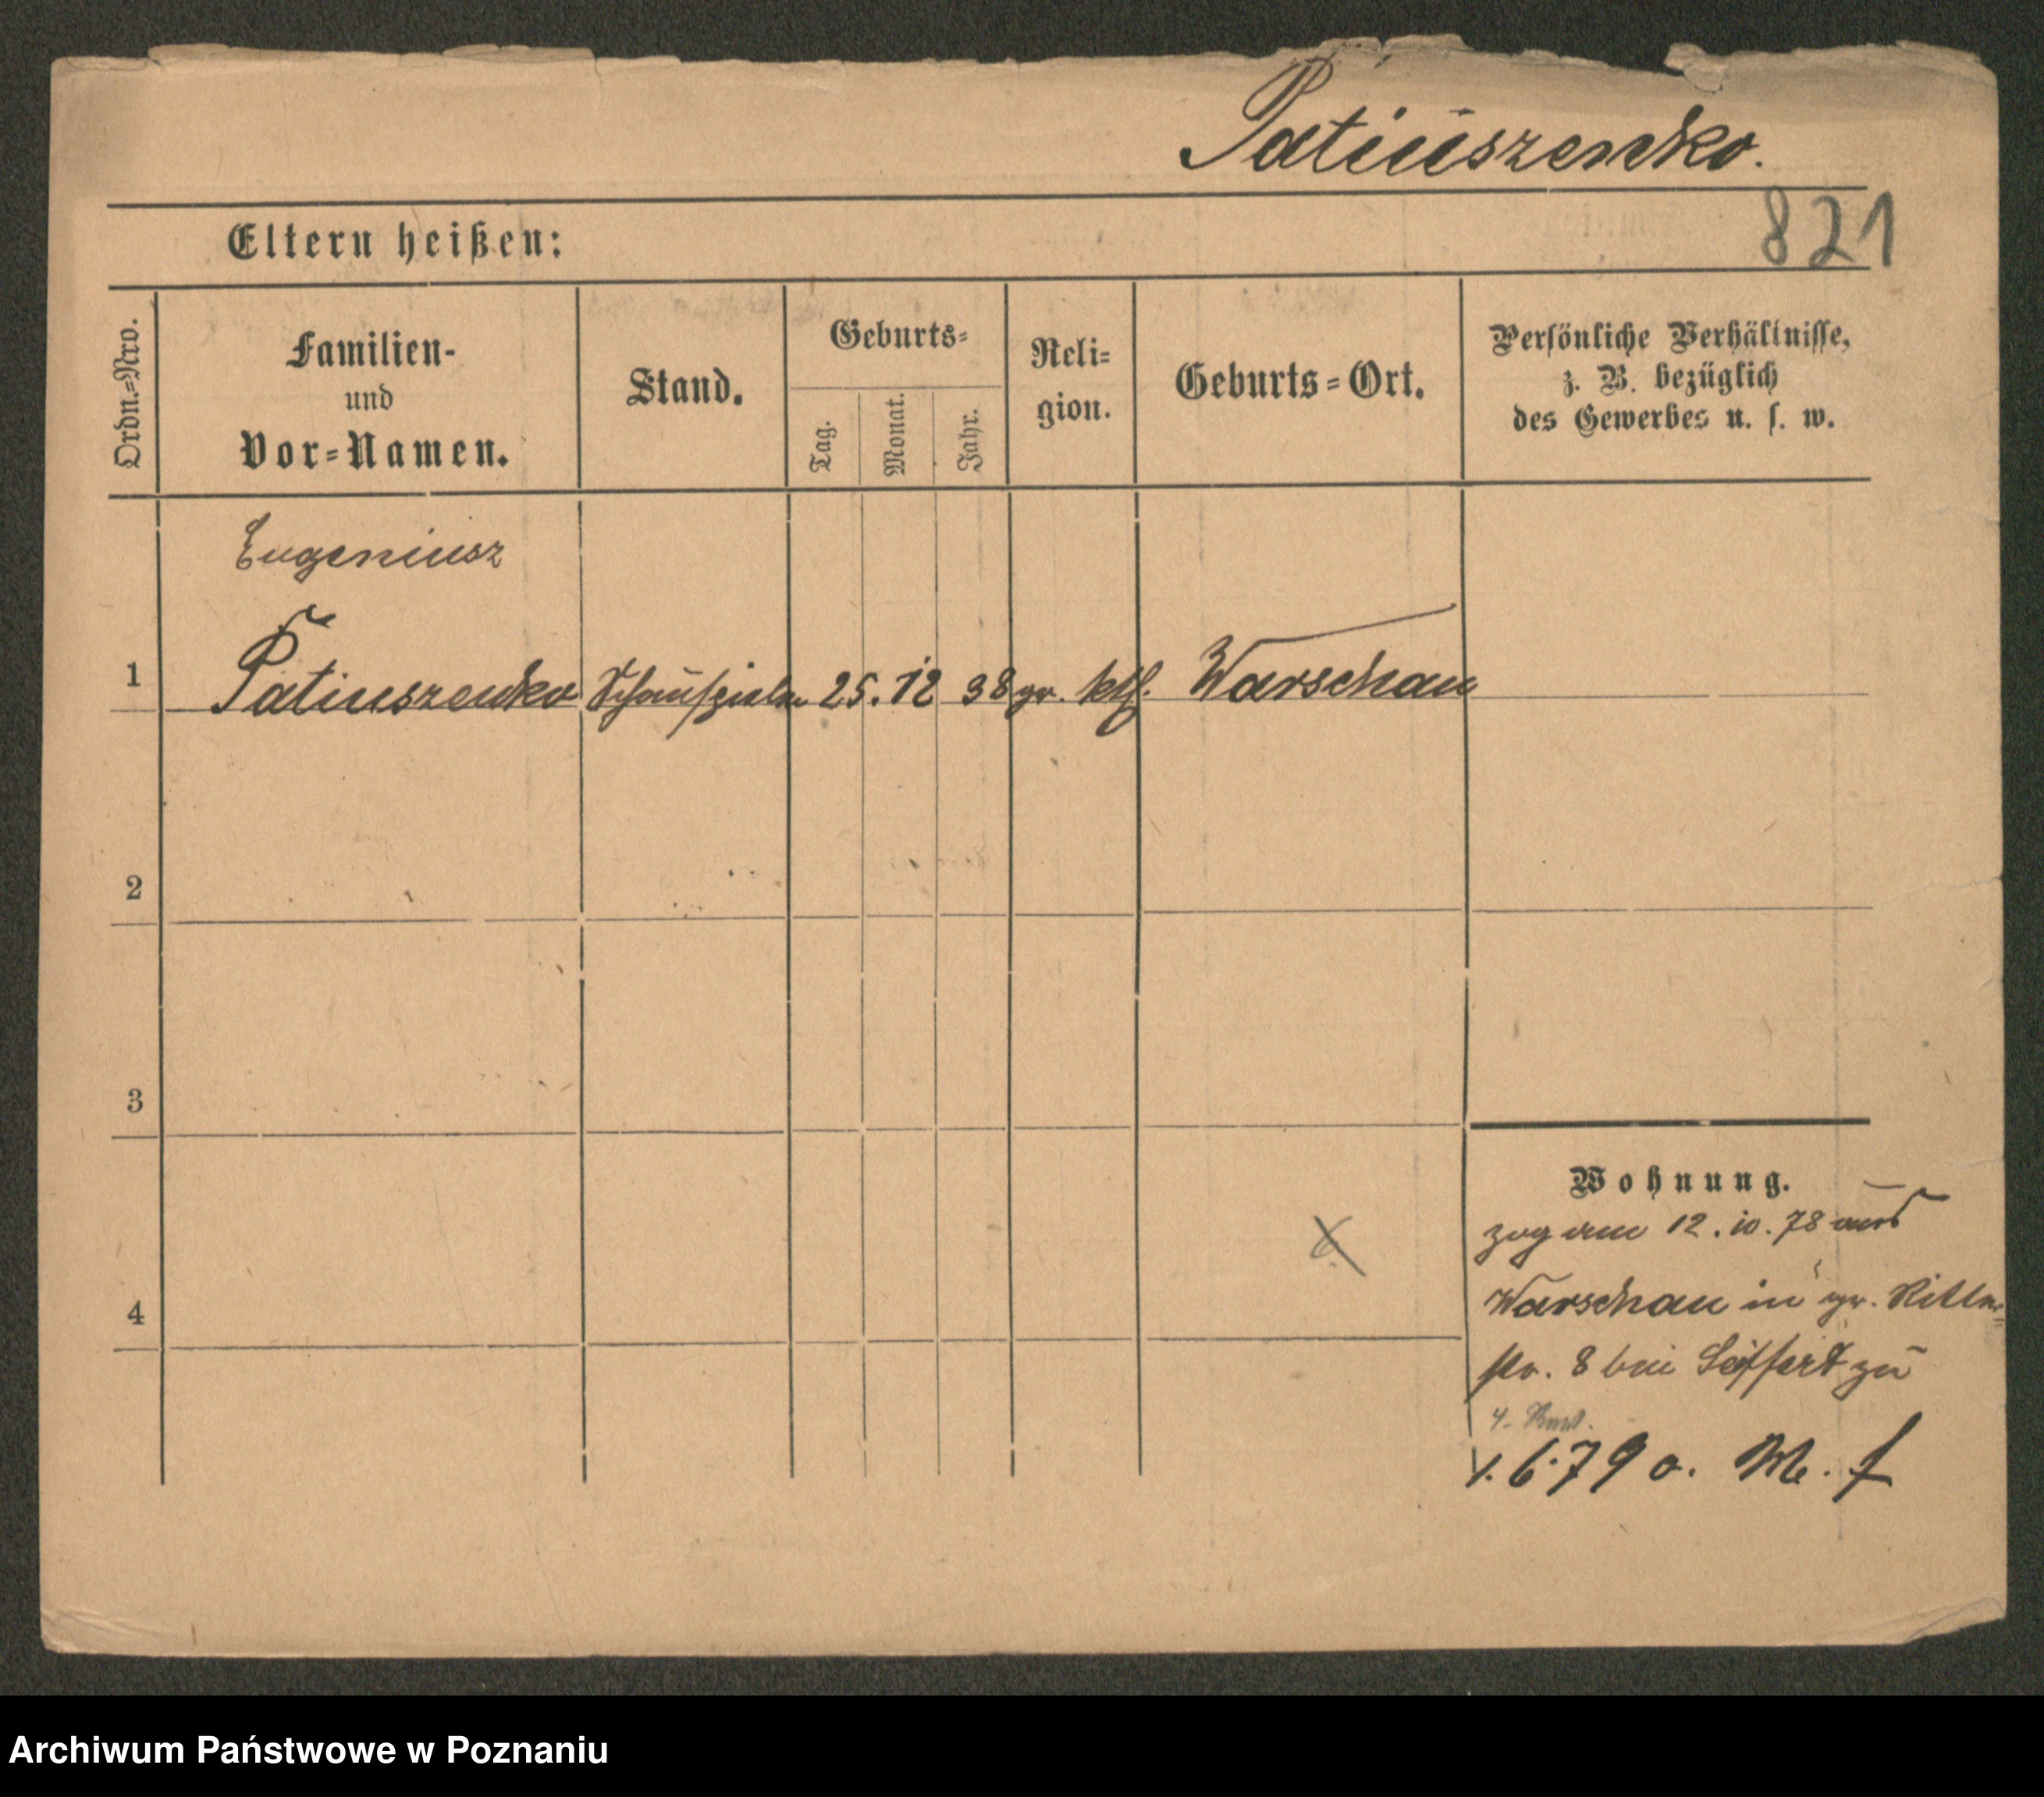 Patiuszenko.
821
Eltern heißen:
Ordn.=Nro.
Familien-
und
Vor=Namen.
Stand.
Geburts=
Tag.
Monat.
Jahr.
Reli=
gion.
Geburts=Ort.
Persönliche Verhältnisse,
z. B. bezüglich
des Gewerbes u. s. w.
Eugeniusz
1 Patiuszenko Schauspieler 25. 12 38 gr. kth. Warschau
2
3
4
Wohnung.
zog am 12. 10. 78 aus
Warschau in gr. Ritter=
str. 8 bei Seiffert zu
1. 6. 79 o. M. f
Archiwum Państwowe w Poznaniu